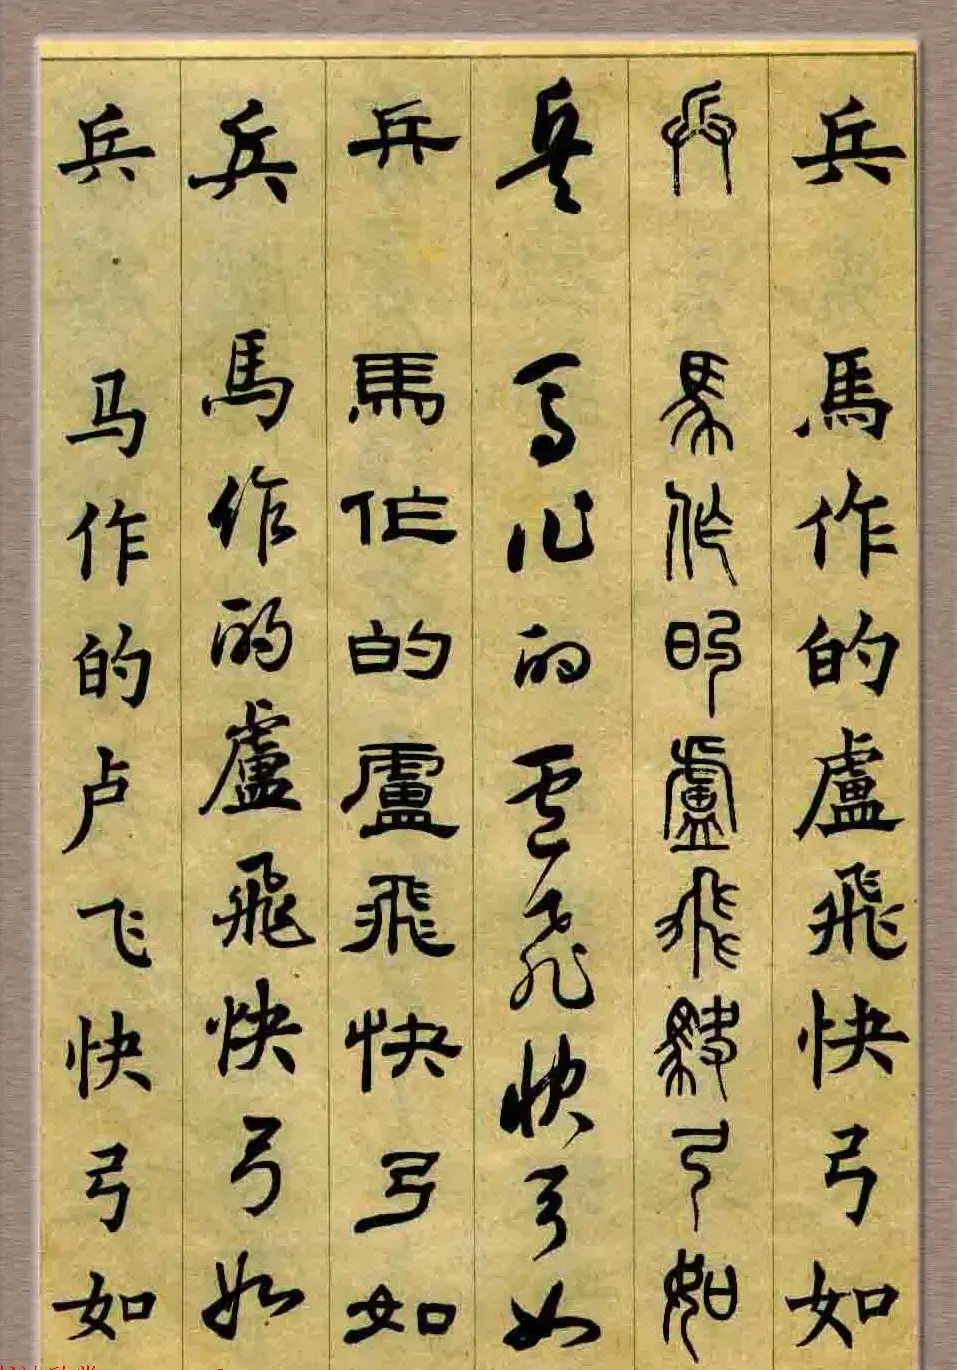 兵馬作的盧飛快弓如
兵馬作的盧飛駃弓如
兵馬作的盧飛快弓如
兵馬作的盧飛快弓如
兵馬作的盧飛快弓如
兵马作的卢飞快弓如